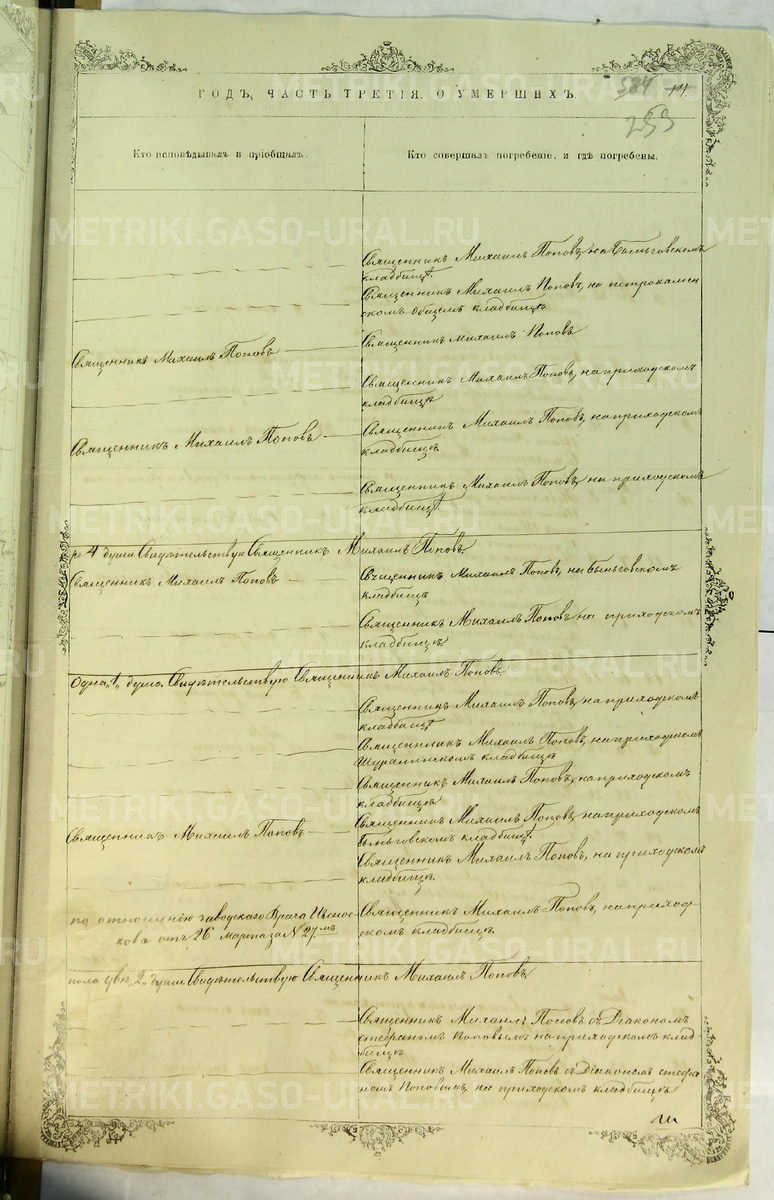 584 14
ГОДЪ, ЧАСТЬ ТРЕТІЯ, О УМЕРШИХЪ.
253
Кто исповѣдывалъ и пріобщалъ.
Кто совершалъ погребеніе, и гдѣ погребены.
Священникъ Михаилъ Поповъ, на Быньговскомъ
кладбищѣ.
Священникъ Михаилъ Поповъ, на петрокамен
скомъ общемъ кладбищѣ
Священникъ Михаилъ Поповъ
Священникъ Михаилъ Поповъ
Священникъ Михаилъ Поповъ, на приходскомъ
кладбищѣ
Священникъ Михаилъ Поповъ
Священникъ Михаилъ Поповъ, на приходскомъ
кладбищѣ.
Священникъ Михаилъ Поповъ, на приходскомъ
кладбищѣ.
ре 4 души Свидѣтельствую Священникъ Михаилъ Поповъ
Священникъ Михаилъ Поповъ
Священникъ Михаилъ Поповъ, на быньговскомъ
кладбищѣ
Священникъ Михаилъ Поповъ на приходскомъ
кладбищѣ
Одна „1„ душа. Свидѣтельствую Священникъ Михаилъ Поповъ
Священникъ Михаилъ Поповъ, на приходскомъ
кладбищѣ
Священникъ Михаилъ Поповъ, на приходскомъ
Шуралинскомъ кладбищѣ
Священникъ Михаилъ Поповъ, на приходскомъ
кладбищѣ
Священникъ Михаилъ Поповъ
Священникъ Михаилъ Поповъ, на приходскомъ
Быньговскомъ кладбищѣ
Священникъ Михаилъ Поповъ, на приходскомъ
кладбищѣ.
по отношенію заводскаго Врача
кова отъ 26 марта за № 27мъ
Священникъ Михаилъ Поповъ, на приход-
скомъ кладбищѣ.
пола двѣ „2„ души. Свидѣтельствую Священникъ Михаилъ Поповъ
Священникъ Михаилъ Поповъ съ Діакономъ
Стефаномъ Поповымъ на приходскомъ клад-
бищѣ
Священникъ Михаилъ Поповъ съ Діакономъ Стефа
номъ Поповымъ, на приходскомъ кладбищѣ
METRIKI.GASO-URAL.RU